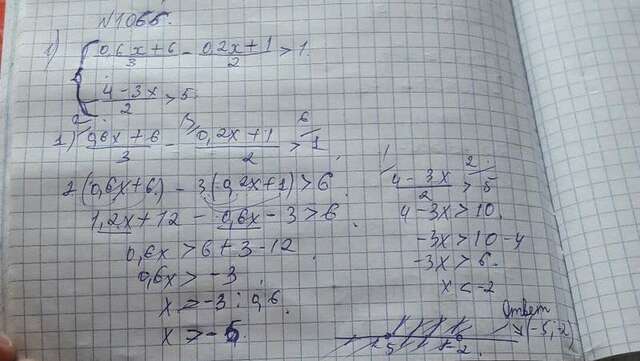 №1065.
1) { (0,6x+6)/3 - (0,2x+1)/2 > 1
(4-3x)/2 > 5
1) (0,6x+6)/3 - (0,2x+1)/2 > 1
2(0,6x+6) - 3(0,2x+1) > 6
1,2x + 12 - 0,6x - 3 > 6
0,6x > 6 + 3 - 12
0,6x > -3
x > -3 : 0,6
x > -5
(4-3x)/2 > 5
4-3x > 10
-3x > 10-4
-3x > 6
x < -2
Ответ
-5 -2 x (-5;-2)